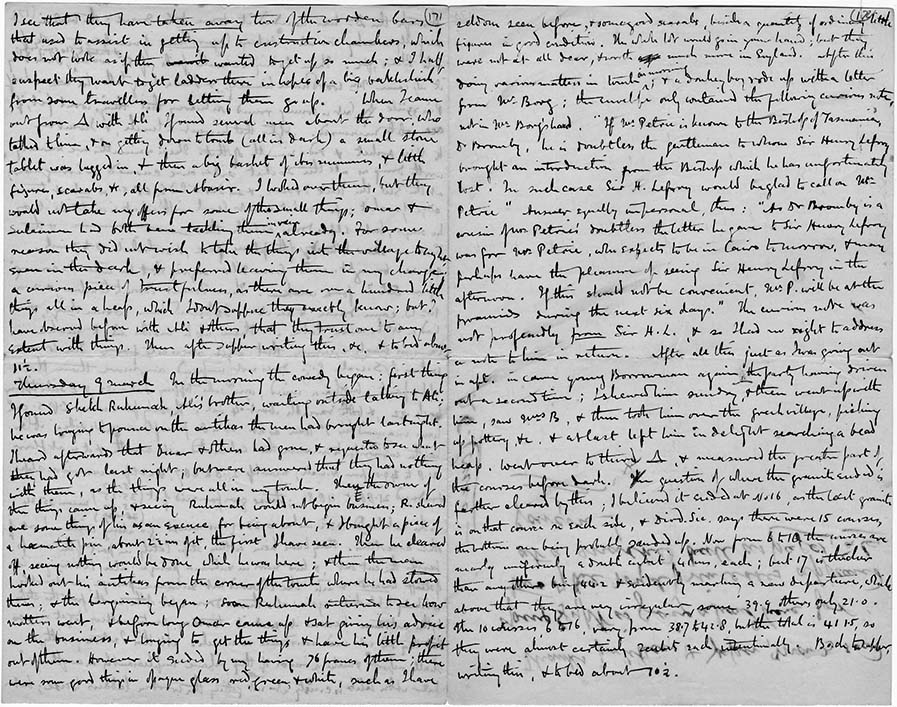 I see that they have taken away two of the wooden bars, (17)
that used to assist in getting up to construction chambers, which
does not look as if they wanted to get up so much; & I half
suspect they want to get ladders there in hopes of a big bakhshish
from some travellers for letting them go up. When I came
out from Δ with Ali I found several men about the door, who
talked to him, & on getting down to tomb (all in dark) a small stone
tablet was lugged in, & then a big basket of ibis mummies, & little
figures, scarabs, &c, all from Abusir. I looked over them, but they
would not take my offers for some of the small things; Omar &
Suleiman had both been tackling them already. For some
reason they did not wish to take the things into the village to-day
even in the dark, & preferred leaving them in my charge,
a curious piece of trustfulness, as there are over a hundred little
things all in a heap, which I don't suppose they exactly know; but I
have observed before with Ali & others that they trust one to any
extent with things. Then after supper writing this, &c. & to bed about
11½.
Thursday 9 March In the morning the comedy began. First thing
I found Sheikh Ruhumah, Ali's brother, waiting outside talking to Ali:
he was longing to pounce on the antikas the men had brought last night.
I heard afterwards that Omar & others had gone, & requested to see what
they had got last night; but were answered that they had nothing
with them, as the things were all in my tomb. Then the owner of
the things came up, & seeing Ruhumah would not begin business; Ru. shewed
me some things of his as an excuse for being about, & I bought a piece of
a haematite pin about 2½ in. of it, the first I have seen. Then he cleared
off, seeing nothing would be done while he was here; & then the man
hooked out his antikas from the corner of the tomb where he had stored
them; & the bargaining began; soon Ruhumah returns to see how
matters went, & before long Omar came up & sat giving his advice
on the business, & longing to get the things & have his little profit
out of them. However it ended by my having 76 francs of them; there
were some good things in opaque glass red, green & white, such as I have
(18)
seldom seen before, & some good scarabs, beside a quantity of ordinary little
figures in good condition. The whole lot would go in your hand; but they
were not at all dear, & worth much more in England. After this
doing various matters in tomb; & a donkey boy rode up with a letter
from Dr. Borg; the envelope only contained the following curious note,
not in Mr. Borg's hand. "If Mr. Petrie is known to the Bishop of Tasmania,
Dr Bromby, he is doubtless the gentleman to whom Sir Henry Lefroy
brought an introduction from the Bishop which he has unfortunately
lost. In such case Sir H. Lefroy would be glad to call on Mr.
Petrie" Answer equally impersonal, thus: "As Dr Bromby is a
cousin of Mr. Petrie's doubtless the letter he gave to Sir Henry Lefroy
was for Mr. Petrie, who expects to be in Cairo tomorrow, & may
perhaps have the pleasure of seeing Sir Henry Lefroy in the
afternoon. If this should not be convenient, Mr. P. will be at the
pyramids during the next six days." The curious note was
not professedly from Sir H. L. & so I had no right to address
a note to him in return. After all this just as I was going out
in aft. in came young Borrowman again, the party having driven
out a second time; I shewed him sundry, & then went up with
him, saw Mrs B. & then took him over the Greek village, picking
up pottery &c. & at last left him in delight searching a bead
heap. Went over to third Δ, & measured the greater part of
the courses before dark. The question of where the granite ended is
further cleared by this; I believed it ended at No 16, as the last granite
is on that course on each side, & Diod. Sic. says there were 15 courses,
the bottom one being probably sanded up. Now from 6 to 16 the courses are
nearly uniformly a double cubit, 41 ins, each; but 17 is thicker
than any other before & evidently marking a new departure, while
above that they are very irregular, some 39.9 others only 21.0.
The 10 courses, 6 to 16, vary from 38.7 to 42.8, but the total is 411.5, so
they were almost certainly 2 cubits each intentionally. Back to supper
writing this, & to bed about 10½.